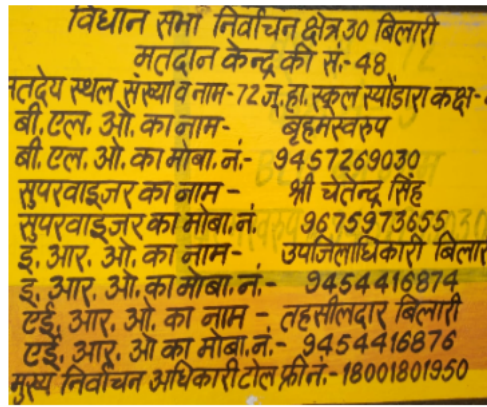 विधान सभा निर्वाचन क्षेत्र 30 बिलारी
मतदान केन्द्र की सं.- 48
मतदेय स्थल संख्या व नाम - 72 जू. हा. स्कूल स्योंडारा कक्ष -
बी. एल. ओ. का नाम - बृहमस्वरुप
बी. एल. ओ. का मोबा. नं:- 9457269030
सुपरवाइजर का नाम - श्री चेतेन्द्र सिंह
सुपरवाइजर का मोबा. नं. 9675973655
इ. आर. ओ. का नाम - उपजिलाधिकारी बिलार
इ. आर. ओ. का मोबा. नं.- 9454416874
एई. आर. ओ. का नाम - तहसीलदार बिलारी
एई. आर. ओ का मोबा. नं.- 9454416876
मुख्य निर्वाचन अधिकारी टोल फ्री नं.- 18001801950